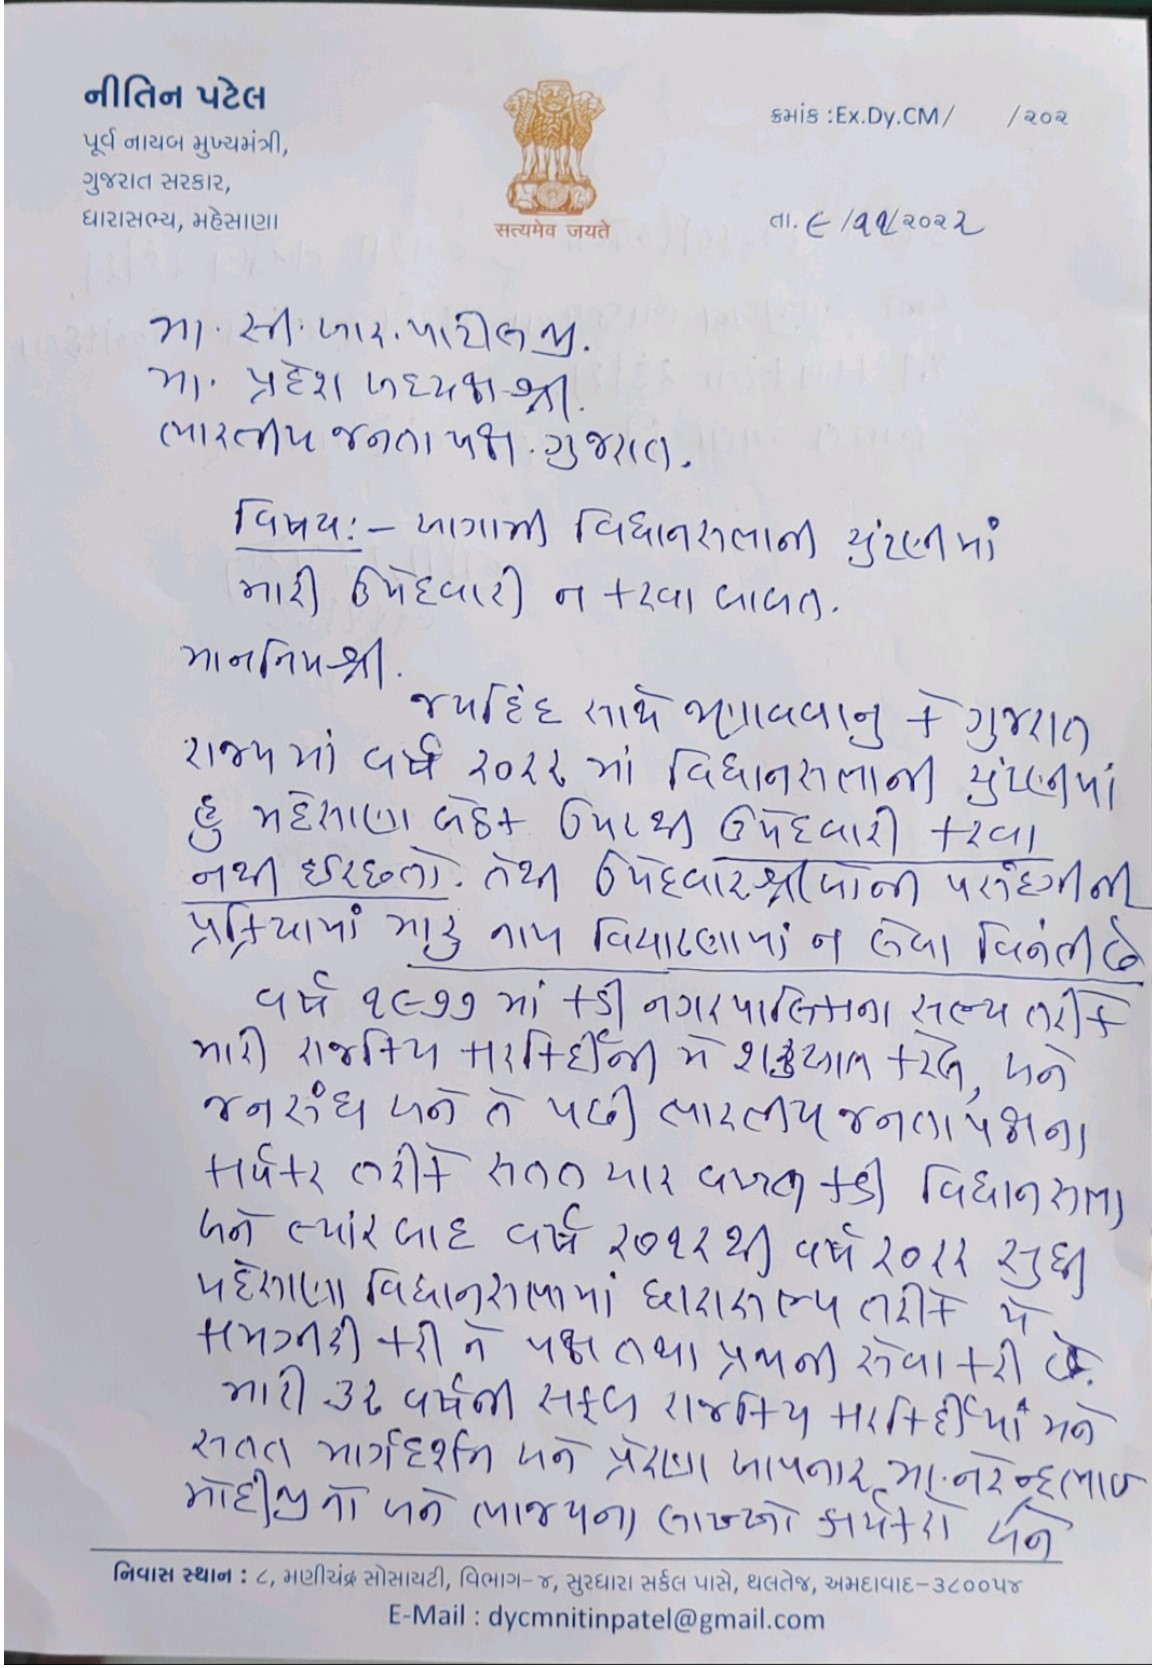 નીતિન પટેલ
પૂર્વ નાયબ મુખ્યમંત્રી,
ગુજરાત સરકાર,
ધારાસભ્ય, મહેસાણા
सत्यमेव जयते
ક્રમાંક :Ex.Dy.CM/ /૨૦૨
તા. ૯/૧૧/૨૦૨૨
મા. સી. આર. પાટીલજી.
મા. પ્રદેશ અધ્યક્ષ શ્રી.
ભારતીય જનતા પક્ષ. ગુજરાત.
વિષય:- આગામી વિધાનસભાની ચુંટણીમાં
મારી ઉમેદવારી ન કરવા બાબત.
માનનિય શ્રી.
જયહિંદ સાથે જણાવવાનુ કે ગુજરાત
રાજ્યમાં વર્ષ ૨૦૨૨ માં વિધાનસભાની ચુંટણીમાં
હું મહેસાણા બેઠક ઉપરથી ઉમેદવારી કરવા
નથી ઈચ્છતો. તેથી ઉમેદવારશ્રીઓની પસંદગીની
પ્રક્રિયામાં મારુ નામ વિચારણામાં ન લેવા વિનંતી છે
વર્ષ ૧૯૭૭ માં કડી નગરપાલિકાના સભ્ય તરીકે
મારી રાજકિય કારકિર્દીની મે શરુઆત કરેલ, અને
જનસંઘ અને તે પછી ભારતીય જનતા પક્ષના
કાર્યકર તરીકે સતત ચાર વખત કડી વિધાનસભા
અને ત્યાંરબાદ વર્ષ ૨૦૧૨થી વર્ષ ૨૦૨૨ સુધી
મહેસાણા વિધાનસભામાં ધારાસભ્ય તરીકે મે
કામગીરી કરી ને પક્ષ તથા પ્રજાની સેવા કરી છે.
મારી ૩૨ વર્ષની સફળ રાજકિય કારકિર્દીમાં મને
સતત માર્ગદર્શન અને પ્રેરણા આપનાર મા. નરેન્દ્રભાઇ
મોદીજીનો અને ભાજપના લાખ્ખો કાર્યકરો અને
નિવાસ સ્થાન : ૮, મણીચંદ્ર સોસાયટી, વિભાગ-૪, સુરધારા સર્કલ પાસે, થલતેજ, અમદાવાદ-૩૮૦૦૫૪
E-Mail : dycmnitinpatel@gmail.com